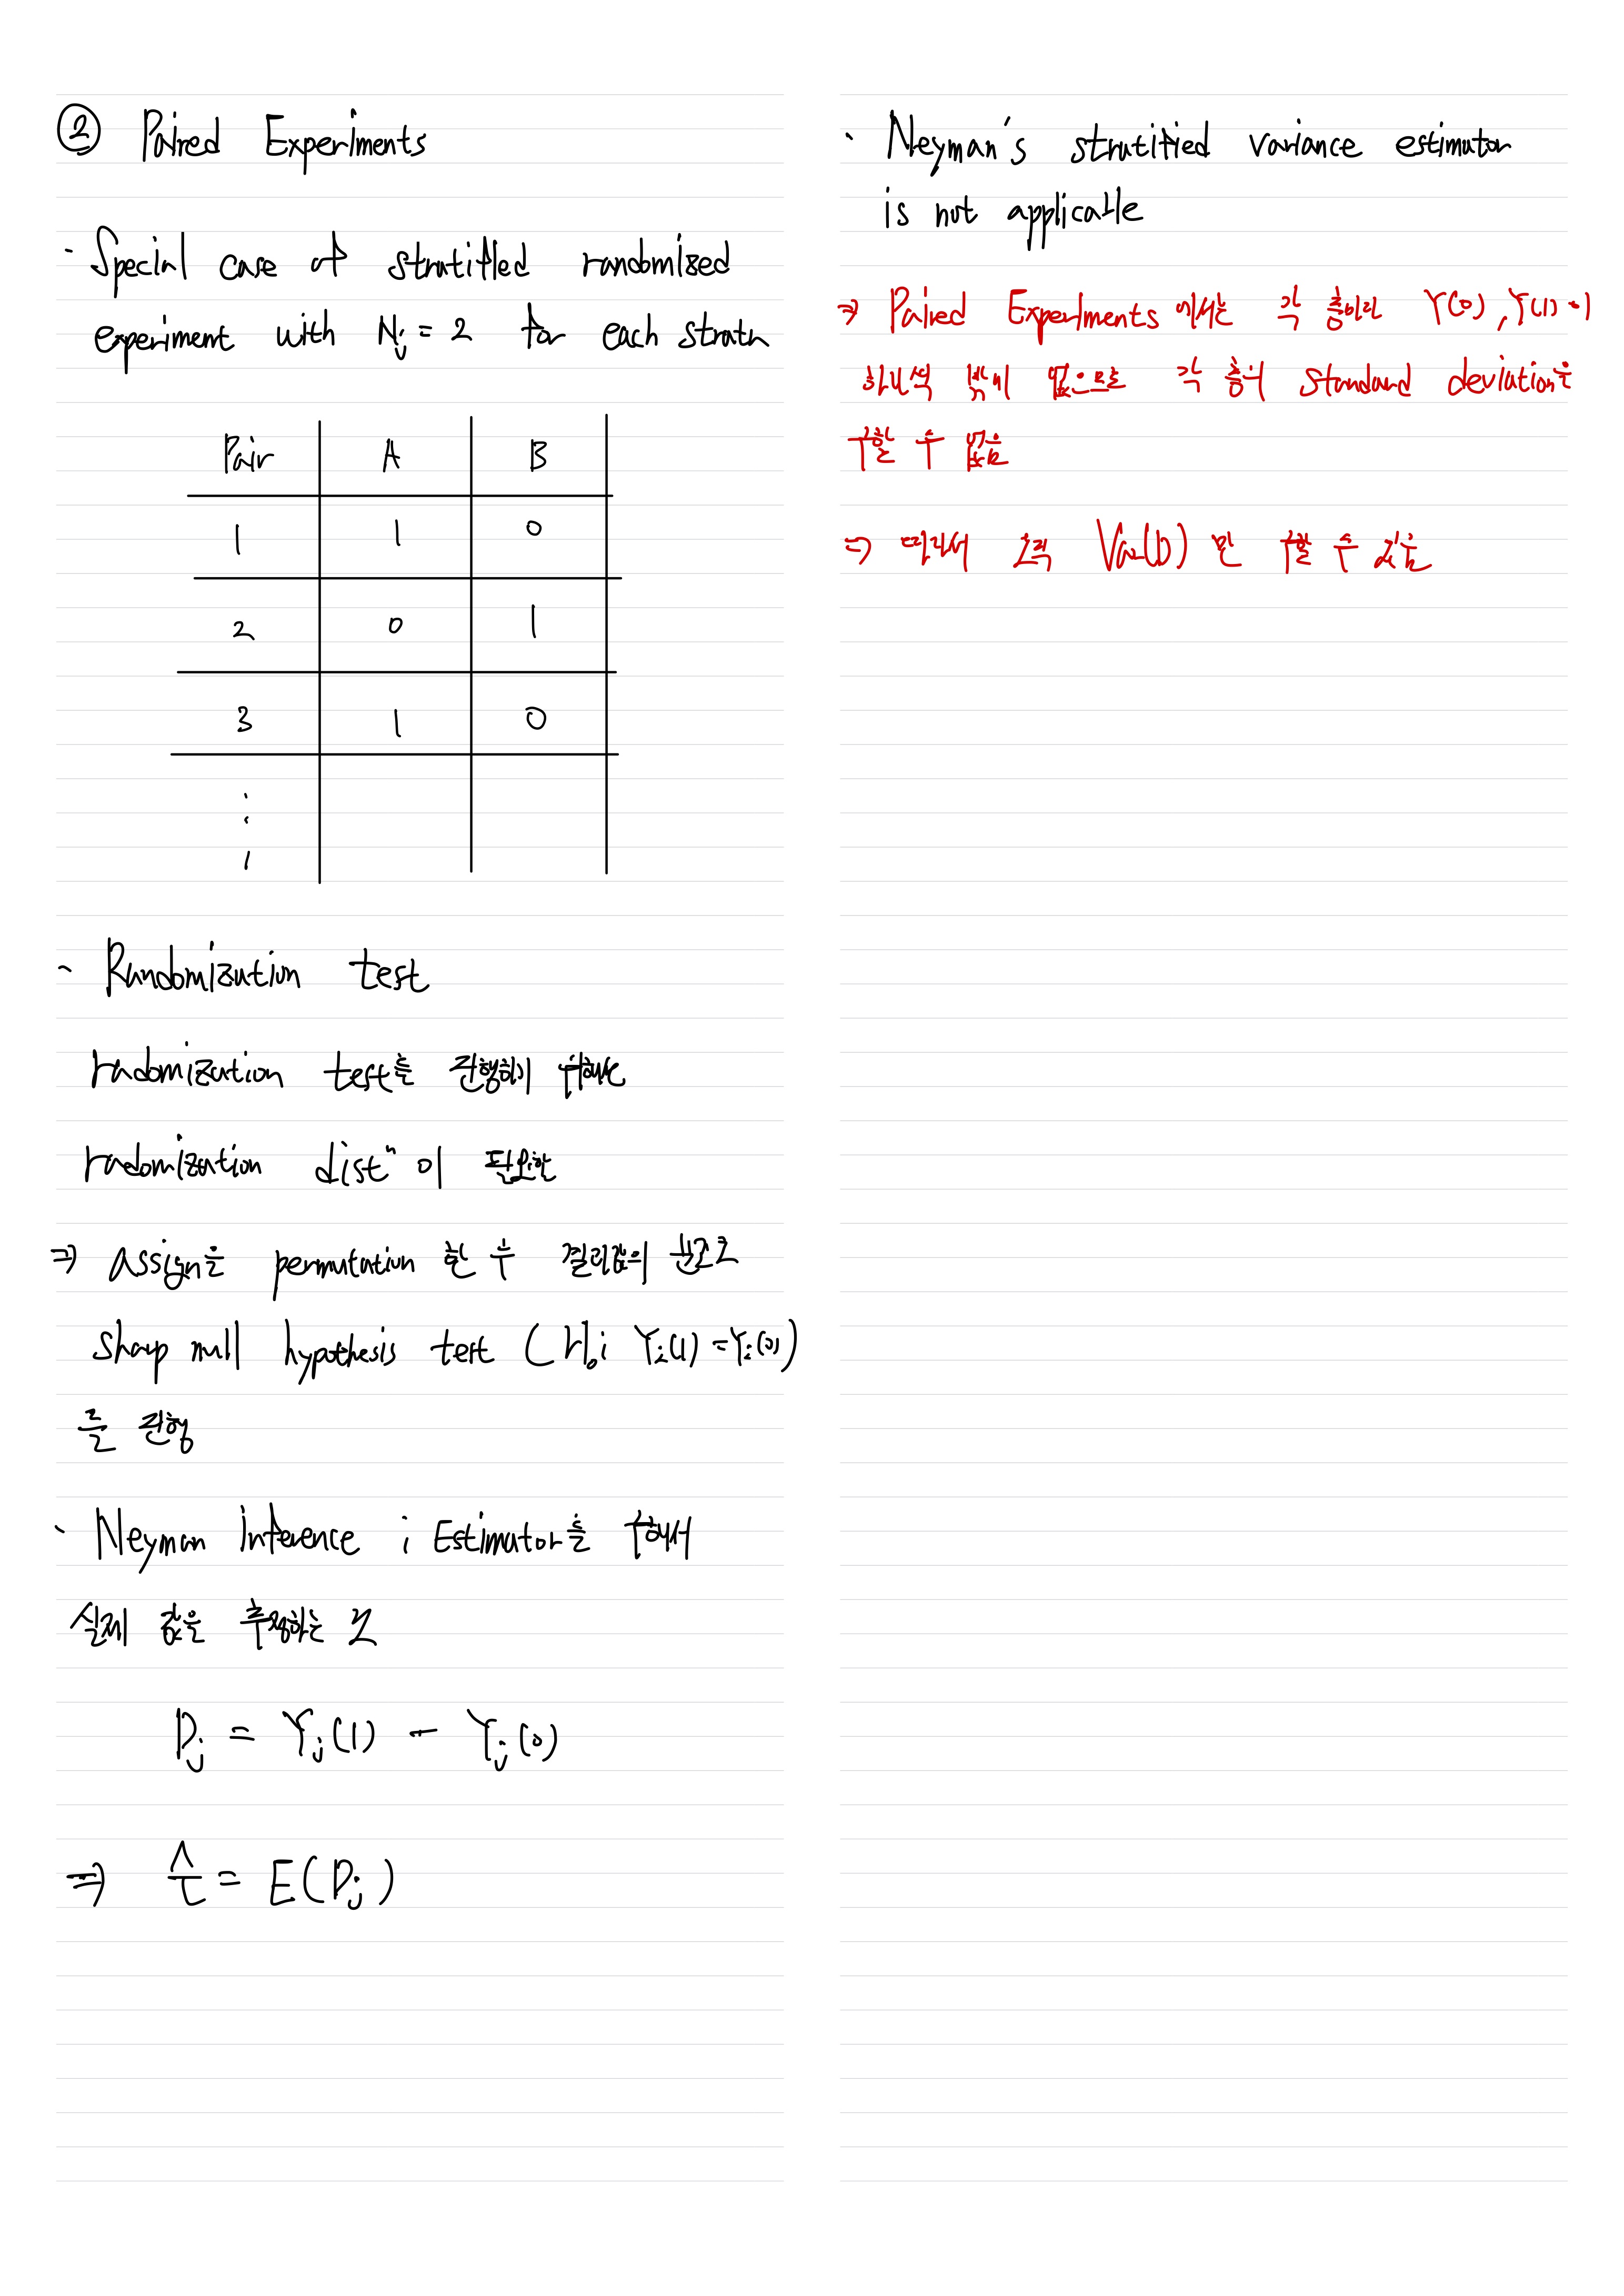 ② Paired Experiments
· Special case of stratified randomized
experiment with Nj = 2 for each strata
Pair A B
1 1 0
2 0 1
3 1 0
⋮
· Randomization test
radomization test를 진행하기 위해선
radomization distⁿ 이 필요함
⇒ assign을 permutation 한 후 결과값의 분포로
sharp null hypothesis test (H₀; Yi(1) = Yi(0))
를 진행
· Neyman inference ; Estimator를 통해서
실제 값을 추정하는 것
Dj = Yj(1) − Yj(0)
⇒ τ̂ = E(Dj)
· Neyman's stratified variance estimator
is not applicable
⇒ Paired Experiments 에서는 각 층마다 Y(0), Y(1) 이
하나씩 밖에 없으므로 각 층의 standard deviation을
구할 수 없음
⇒ 따라서 오직 Var(D) 만 구할 수 있음